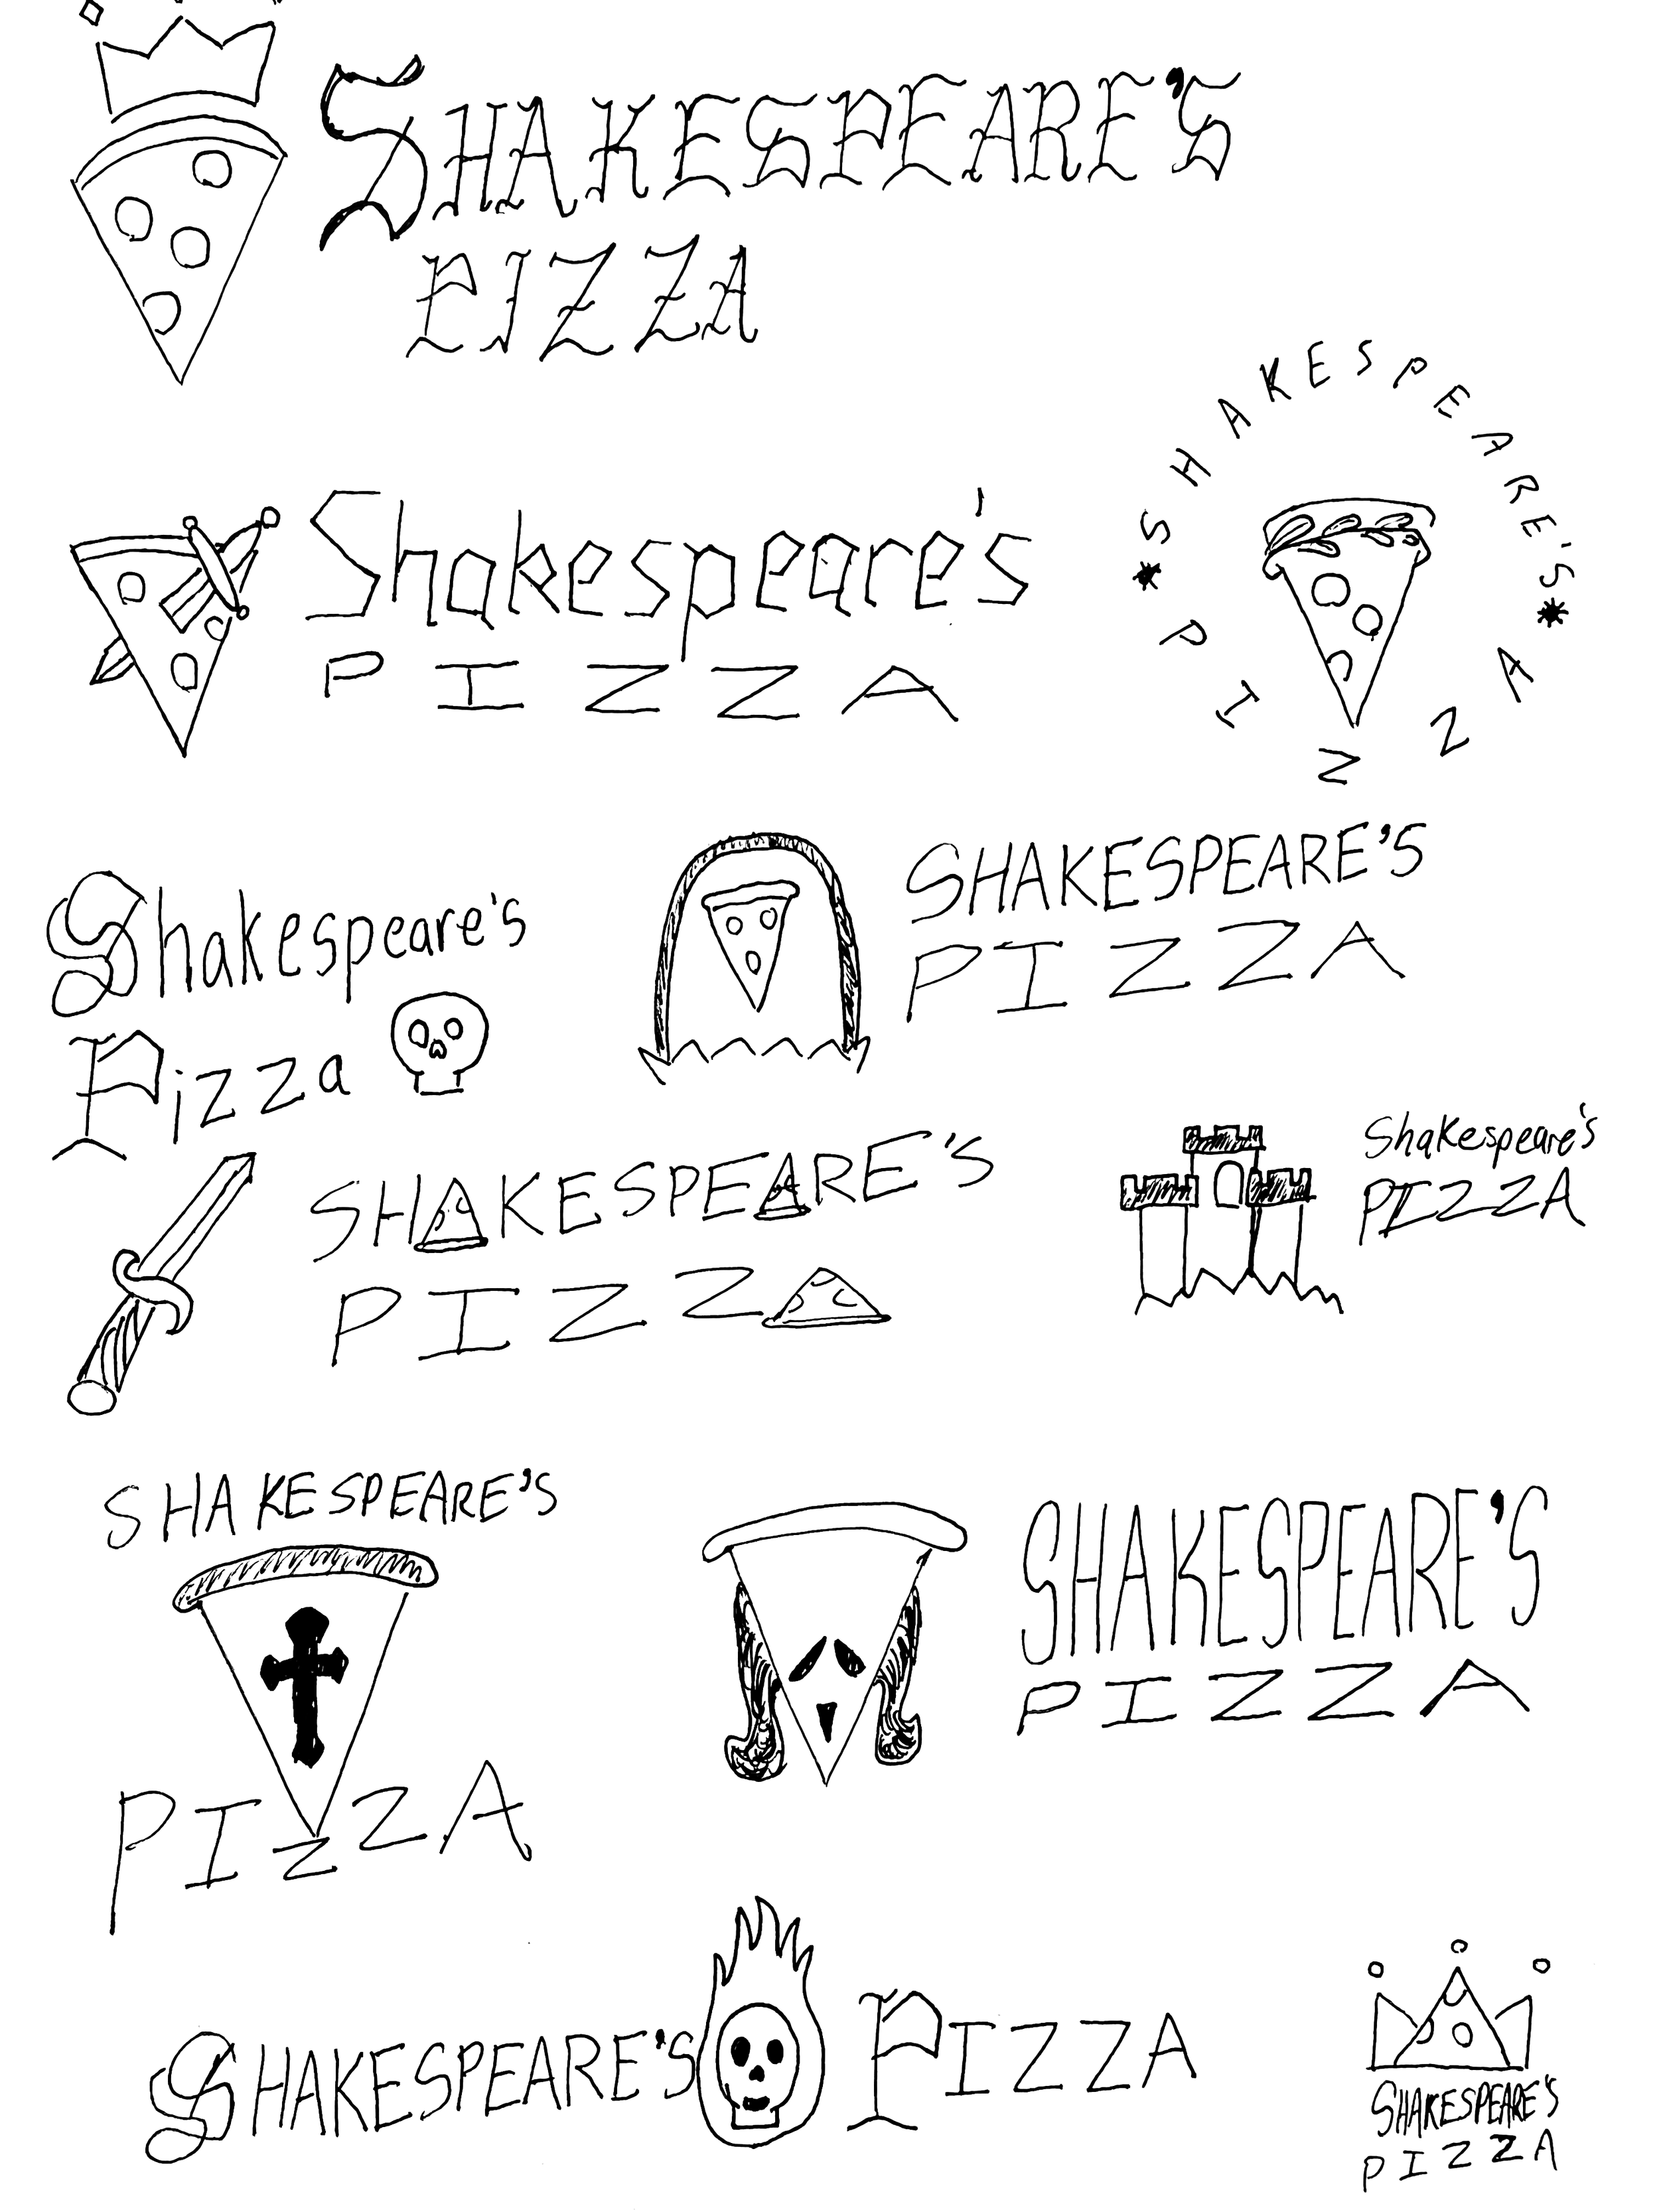 SHAKESPEARE'S
PIZZA
SHAKESPEARE'S
PIZZA
Shakespeare's
PIZZA
Shakespeare's
Pizza
SHAKESPEARE'S
PIZZA
SHAKESPEARE'S
PIZZA
Shakespeare's
PIZZA
SHAKESPEARE'S
PIZZA
SHAKESPEARE'S
PIZZA
SHAKESPEARE'S PIZZA
SHAKESPEARE'S
PIZZA